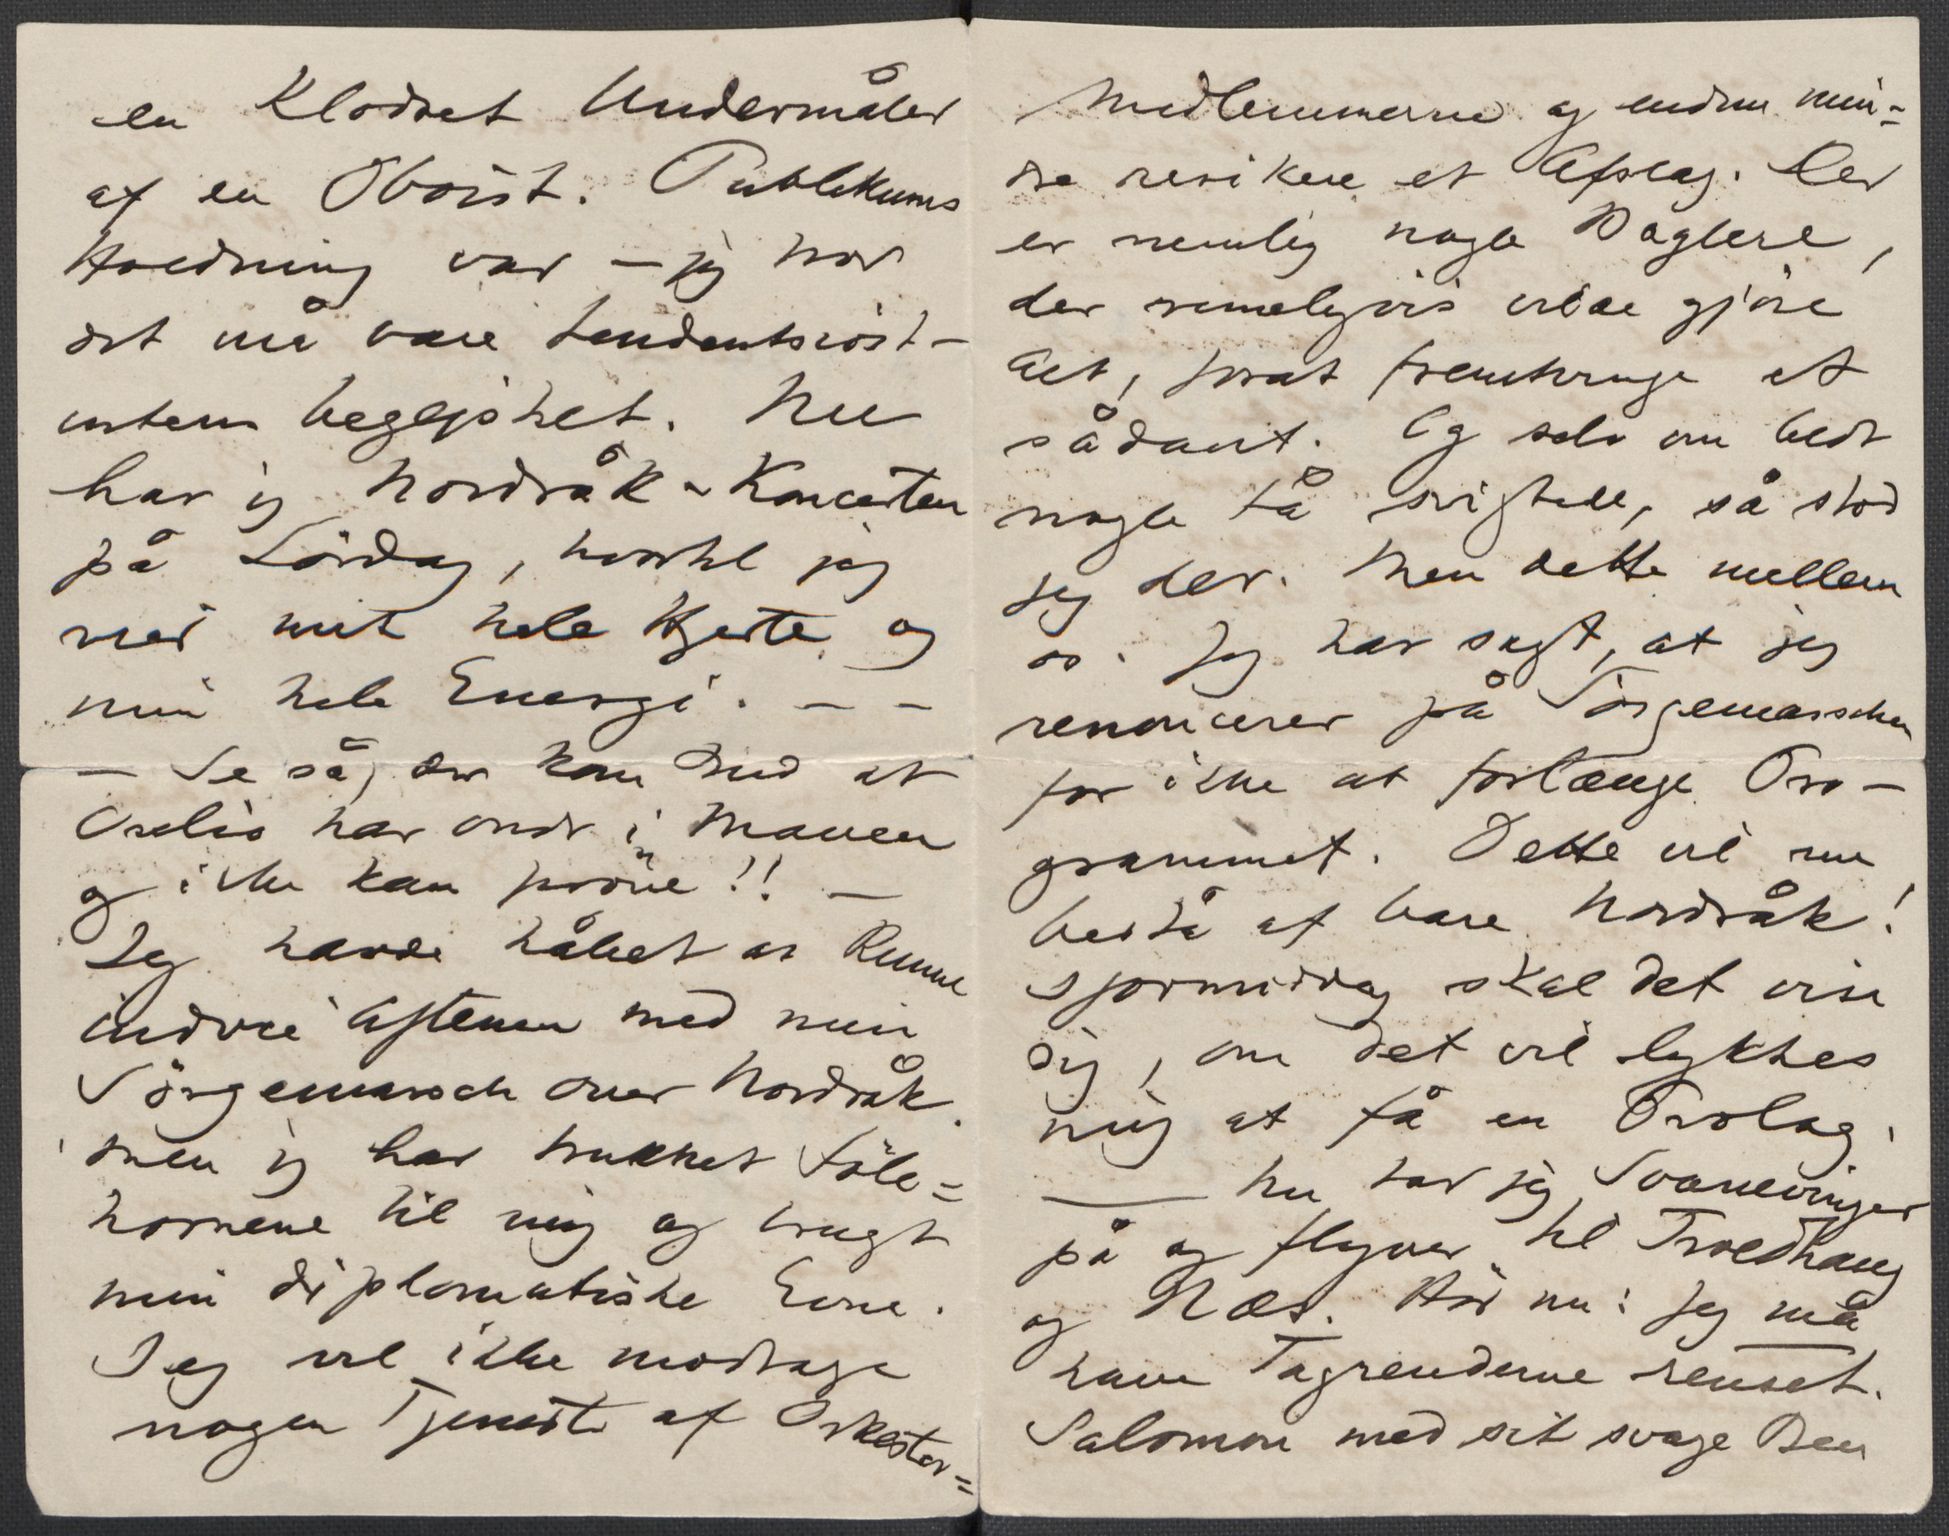 en Klodset Undermåler
af en Oboist. Publikums
Holdning var – jeg tror
det må være tendentsiöst –
uden begejstret. Nu
har jeg Nordråk-Koncerten
på Lördag, hvortil jeg
vier mit hele Hjerte og
min hele Energi. – –
– Se så, der kom Bud at
Oselio har ondt i Maven
og ikke kan pröve!! –
Jeg havde håbet at kunne
indvie Aftenen med min
Sörgemarsch over Nordråk.
Men jeg har trukket Föle=
hornene til mig og brugt
min diplomatiske Evne.
Jeg vil ikke modtage
nogen Tjeneste af Orkester=
Medlemmerne og endnu min=
dre risikere et Afslag. Der
er nemlig nogle Böglere,
der rimeligvis vilde gjöre
Alt, forat fremtvinge et
sådant. Og selv om blot
nogle få svigtede, så stod
jeg der. Men dette mellem
os. Jeg har sagt, at jeg
renoncerer på Sörgemarschen
for ikke at forlænge Pro-
grammet. Dette vil nu
bestå af bare Nordråk!
I formiddag skal det vise
sig, om det vil lykkes
mig at få en Prolog.
— Nu tar jeg Svanevinger
på og flyver til Troldhaug
og Næs. Hör nu: Jeg må
have Tagrenderne renset.
Salomon med sit svage Ben